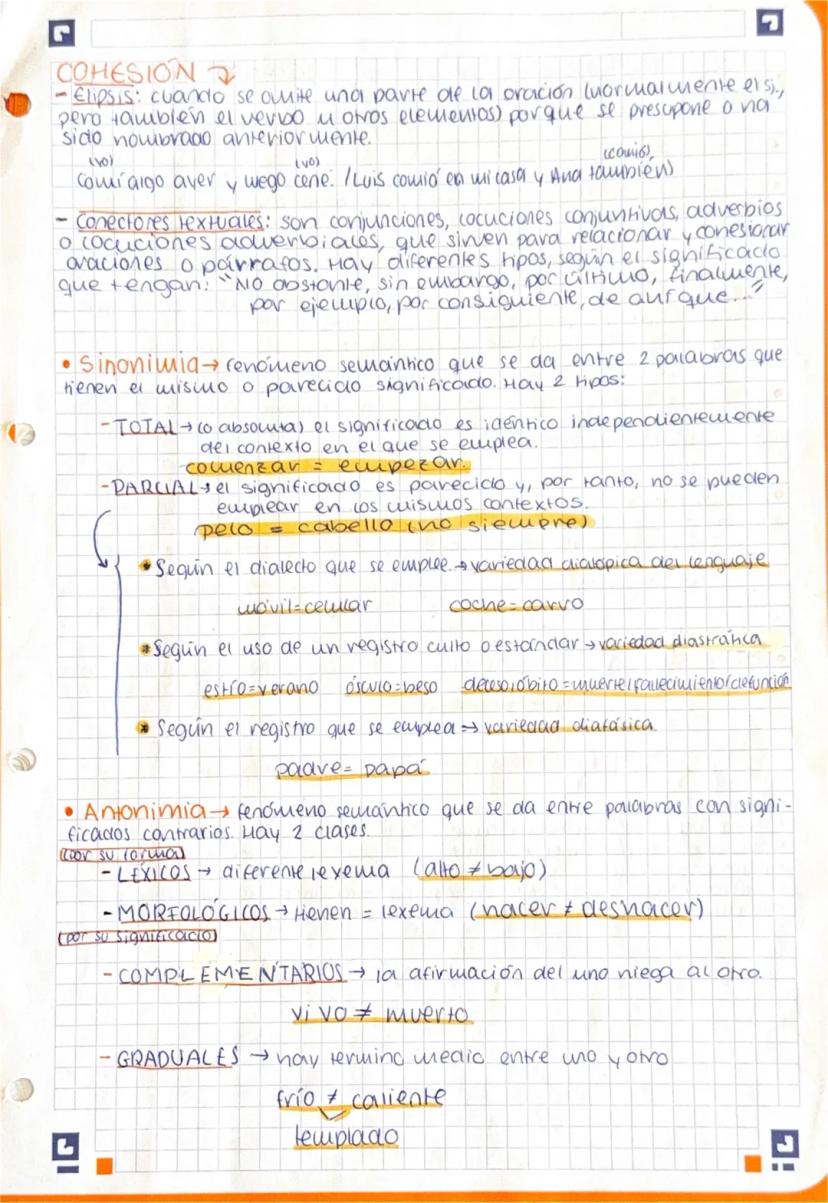 COHESIÓN
- Elipsis: cuando se omite una parte de la oración (normalmente el sj.,
pero también el verbo u otros elementos) porque se presupone o ha
sido nombrado anteriormente.
(yo) (yo) (comió)
Comí algo ayer y luego cené. / Luis comió en mi casa y Ana también)
- Conectores textuales: son conjunciones, locuciones conjuntivas, adverbios
o locuciones adverbiales, que sirven para relacionar y cohesionar
oraciones o párrafos. Hay diferentes tipos, según el significado
que tengan: "No obstante, sin embargo, por último, finalmente,
por ejemplo, por consiguiente, de ahí que..."
• Sinonimia → fenómeno semántico que se da entre 2 palabras que
tienen el mismo o parecido significado. Hay 2 tipos:
- TOTAL → (o absoluta) el significado es idéntico independientemente
del contexto en el que se emplea.
comenzar = empezar.
- PARCIAL → el significado es parecido y, por tanto, no se pueden
emplear en los mismos contextos.
pelo = cabello (no siempre)
• Según el dialecto que se emplee. → variedad diatópica del lenguaje
móvil = celular coche = carro
• Según el uso de un registro culto o estándar → variedad diastrática
estío = verano ósculo = beso deceso, óbito = muerte/fallecimiento/defunción
• Según el registro que se emplea → variedad diafásica.
padre = papá
• Antonimia → fenómeno semántico que se da entre palabras con signi-
ficados contrarios. Hay 2 clases.
(por su forma)
- LÉXICOS → diferente lexema (alto ≠ bajo)
- MORFOLÓGICOS → tienen = lexema (hacer ≠ deshacer)
(por su significado)
- COMPLEMENTARIOS → la afirmación del uno niega al otro.
vivo ≠ muerto
- GRADUALES → hay termino medio entre uno y otro
frío ≠ caliente
templado